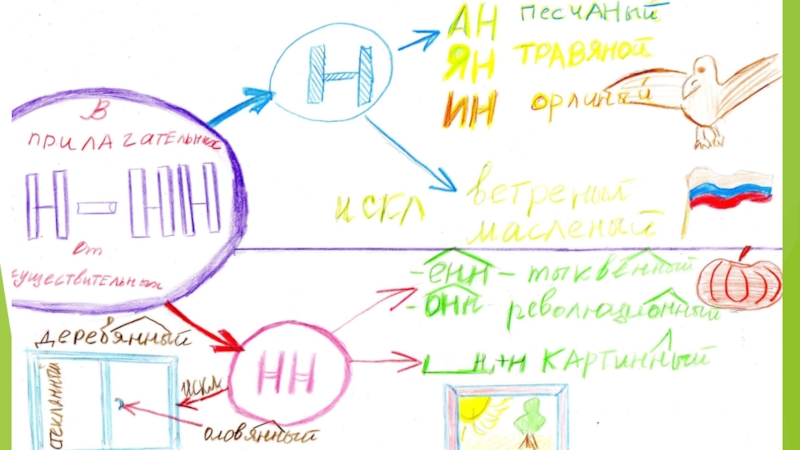 В
ПРИЛАГАТЕЛЬНЫХ
Н - НН
от
существительных
Н
АН песчаный
ЯН травяной
ИН орлиный
искл ветреный
масленый
-енн - тыквенный
-онн революционный
н+н картинный
НН
деревянный
искл
стеклянный
оловянный